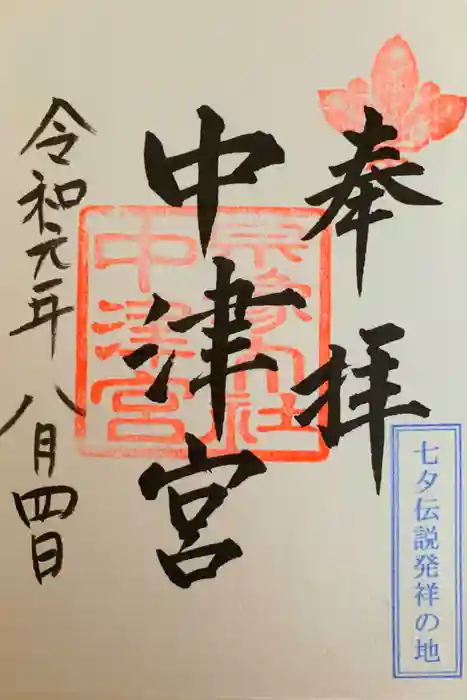 奉拝
七夕伝説発祥の地
中津宮
宗像大社
中津宮
令和元年八月四日